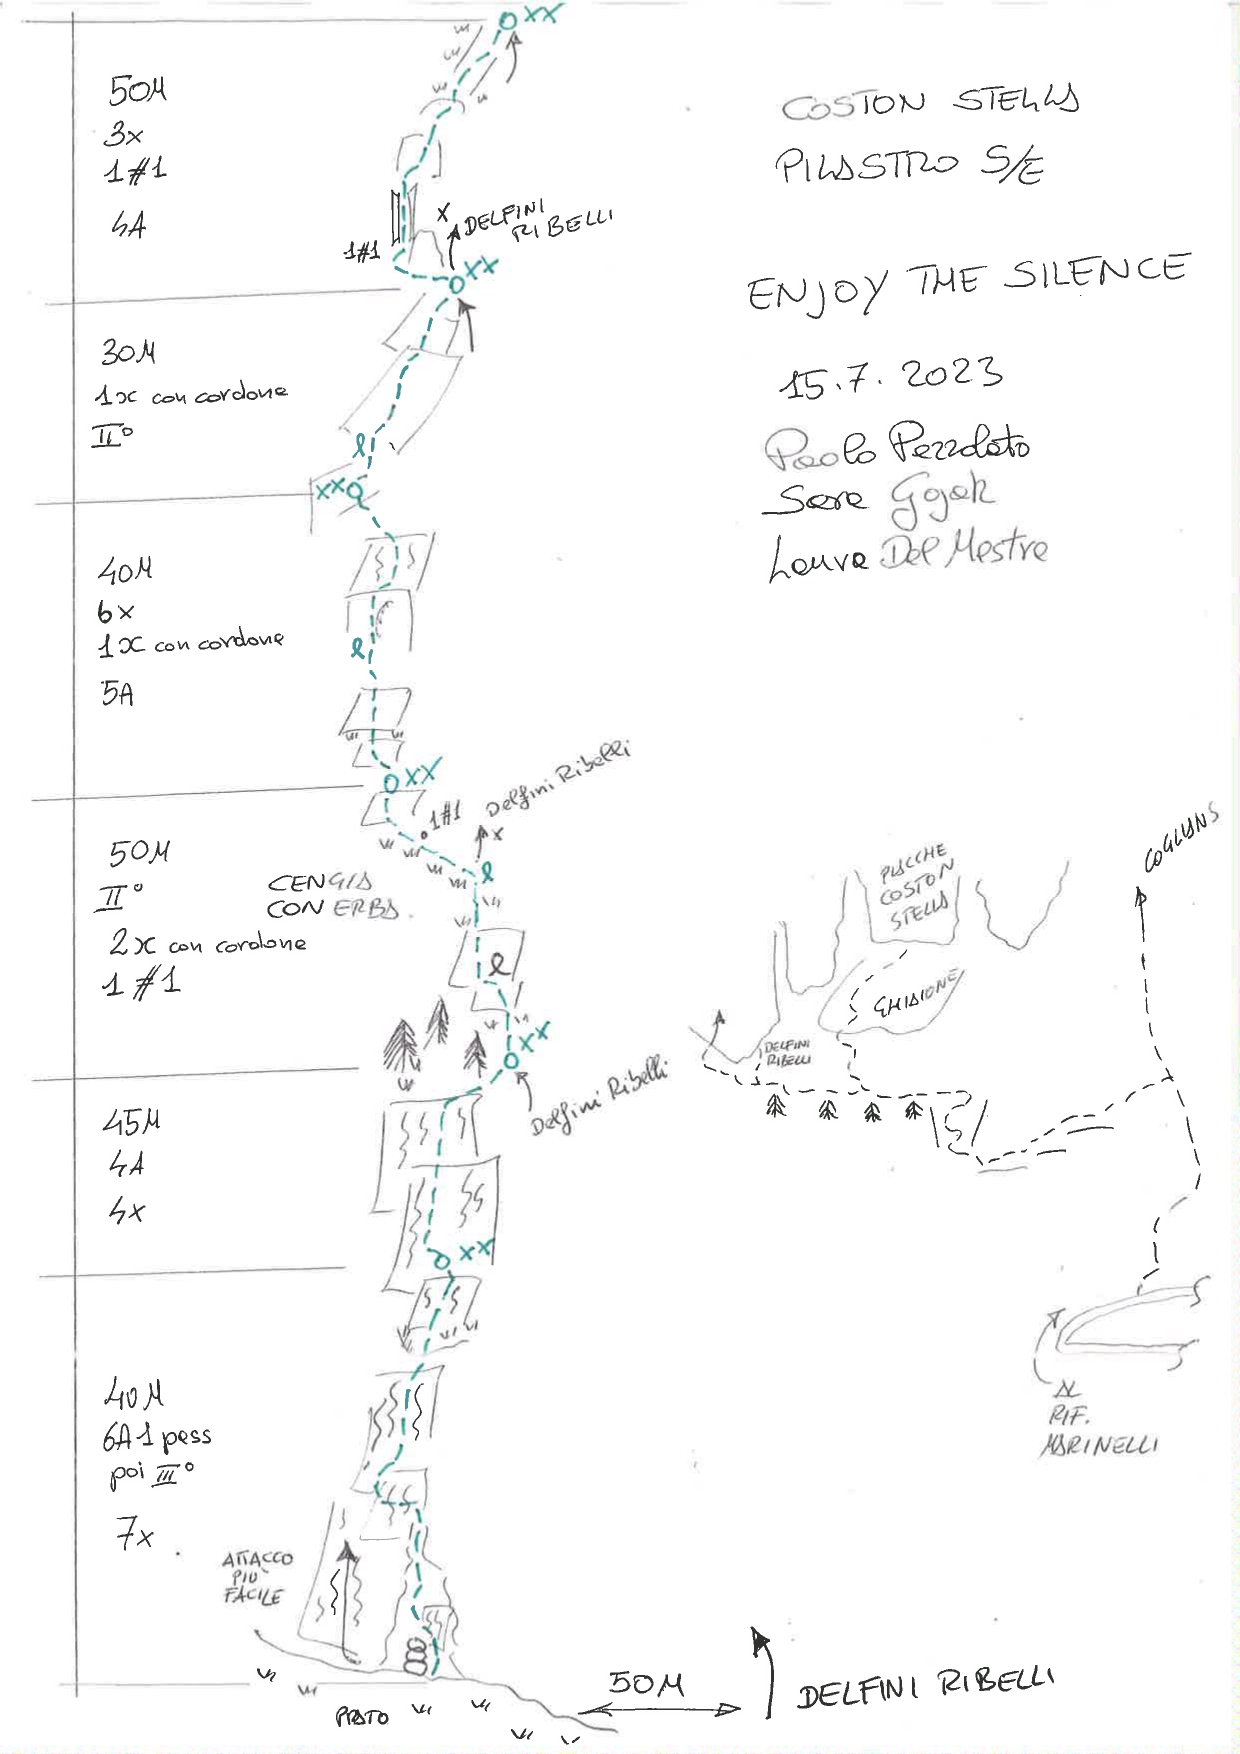 XX
50M
3x
1#1
4A
1#1
X
DELFINI
RIBELLI
XX
COSTON STELLA
PILASTRO S/E
ENJOY THE SILENCE
15.7.2023
Paolo Pezzolato
Sara Gojak
Laura Del Mestre
30M
1x con cordone
II°
XX
40M
6x
1x con cordone
5A
XX
1#1
Delfini Ribelli
x
50M
II°
2x con cordone
1#1
CENGIA
CON ERBA
XX
Delfini Ribelli
45M
4A
4x
XX
40M
6A 1 pass
poi III°
7x
ATTACCO
PIÙ
FACILE
PRATO
50M
DELFINI RIBELLI
PLACCHE
COSTON
STELLA
GHIAIONE
DELFINI
RIBELLI
COGLIANS
AL
RIF.
MARINELLI